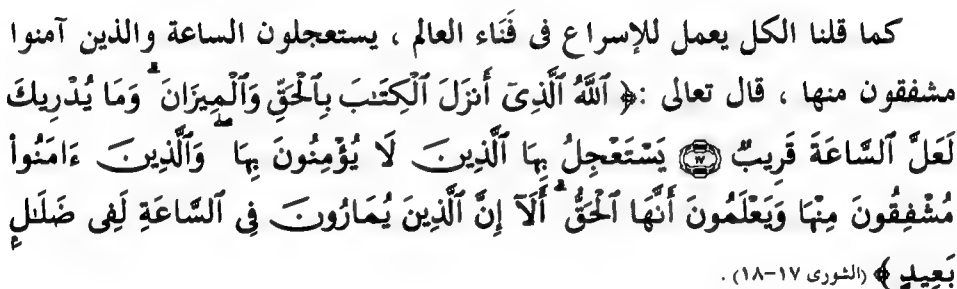 كما قلنا الكل يعمل للإسراع فى فَنَاء العالم ، يستعجلون الساعة والذين آمنوا
مشفقون منها ، قال تعالى :﴿ ٱللَّهُ ٱلَّذِىٓ أَنزَلَ ٱلْكِتَٰبَ بِٱلْحَقِّ وَٱلْمِيزَانَ ۗ وَمَا يُدْرِيكَ
لَعَلَّ ٱلسَّاعَةَ قَرِيبٌ ۝١٧ يَسْتَعْجِلُ بِهَا ٱلَّذِينَ لَا يُؤْمِنُونَ بِهَا ۖ وَٱلَّذِينَ ءَامَنُوا۟
مُشْفِقُونَ مِنْهَا وَيَعْلَمُونَ أَنَّهَا ٱلْحَقُّ ۗ أَلَآ إِنَّ ٱلَّذِينَ يُمَارُونَ فِى ٱلسَّاعَةِ لَفِى ضَلَٰلٍۭ
بَعِيدٍ ﴾ (الشورى ١٧-١٨) .